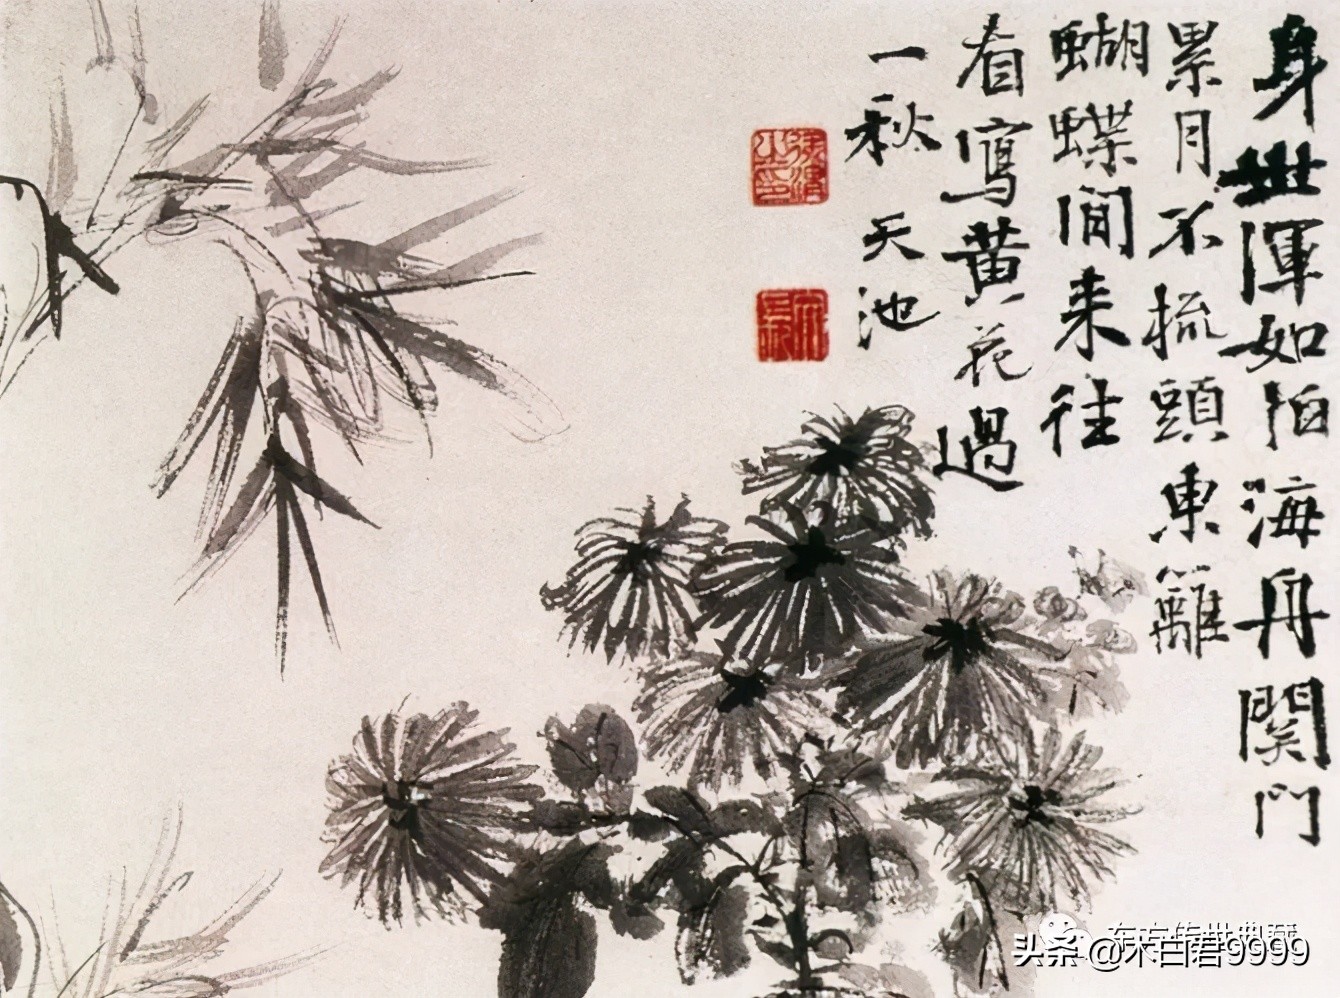 身世渾如拍海舟關門
累月不梳頭東籬
蝴蝶間来往
看寫黄花過
一秋 天池
徐渭之印
头条 @木白君9999